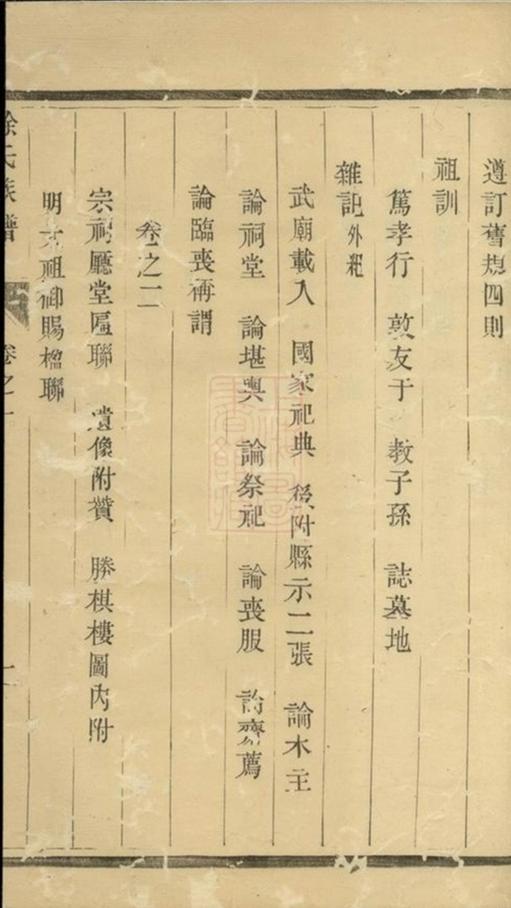 遵訂舊規四則
祖訓
篤孝行 敦友于 教子孫 誌墓地
雜記外紀
武廟載入 國家祀典 後附縣示二張 論木主
論祠堂 論堪輿 論祭祀 論喪服 論齊薦
論臨喪稱謂
卷之二
宗祠廳堂匾聯 遺像附贊 勝棋樓圖內附
明太祖御賜楹聯
徐氏族譜 卷之一